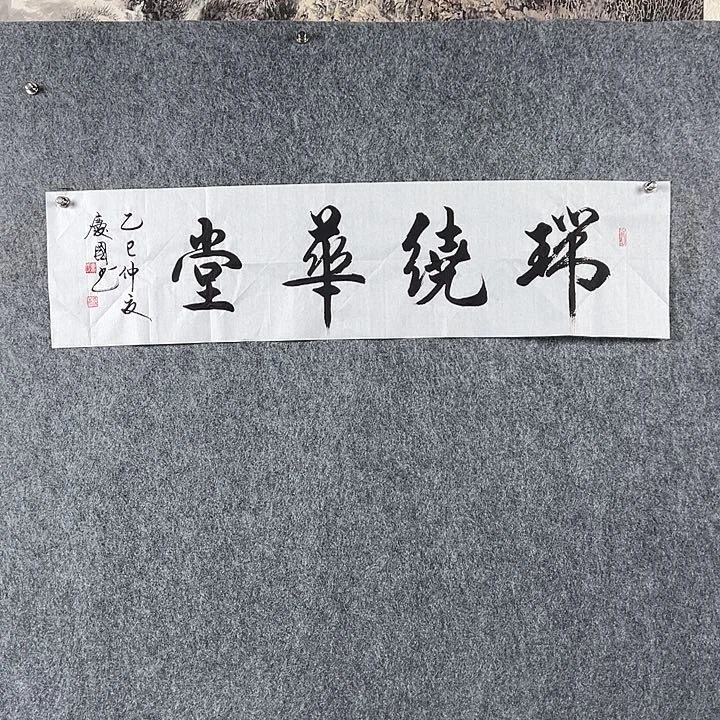 瑞繞華堂
乙巳仲夏
慶國書